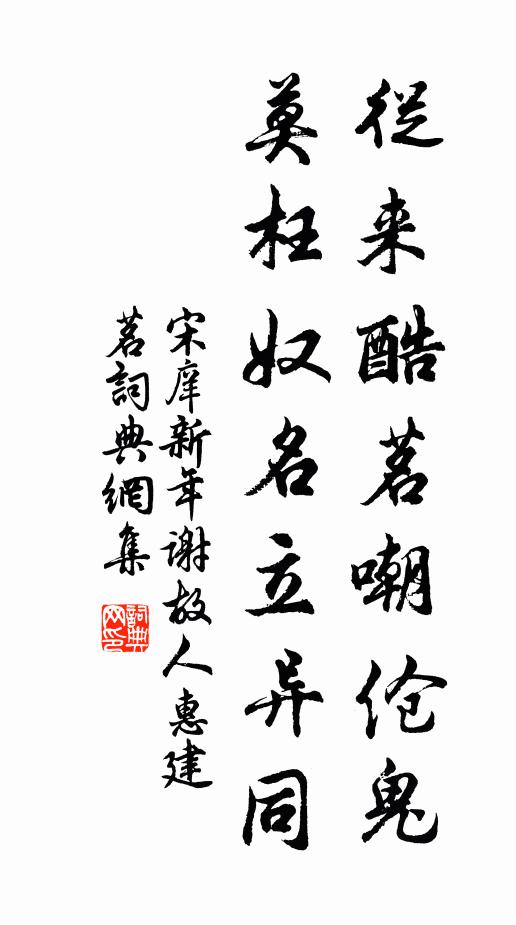 從来酷茗嘲伧鬼
莫枉奴名立异同
宋庠新年謝故人惠建
茗詞典網集
詞典網印